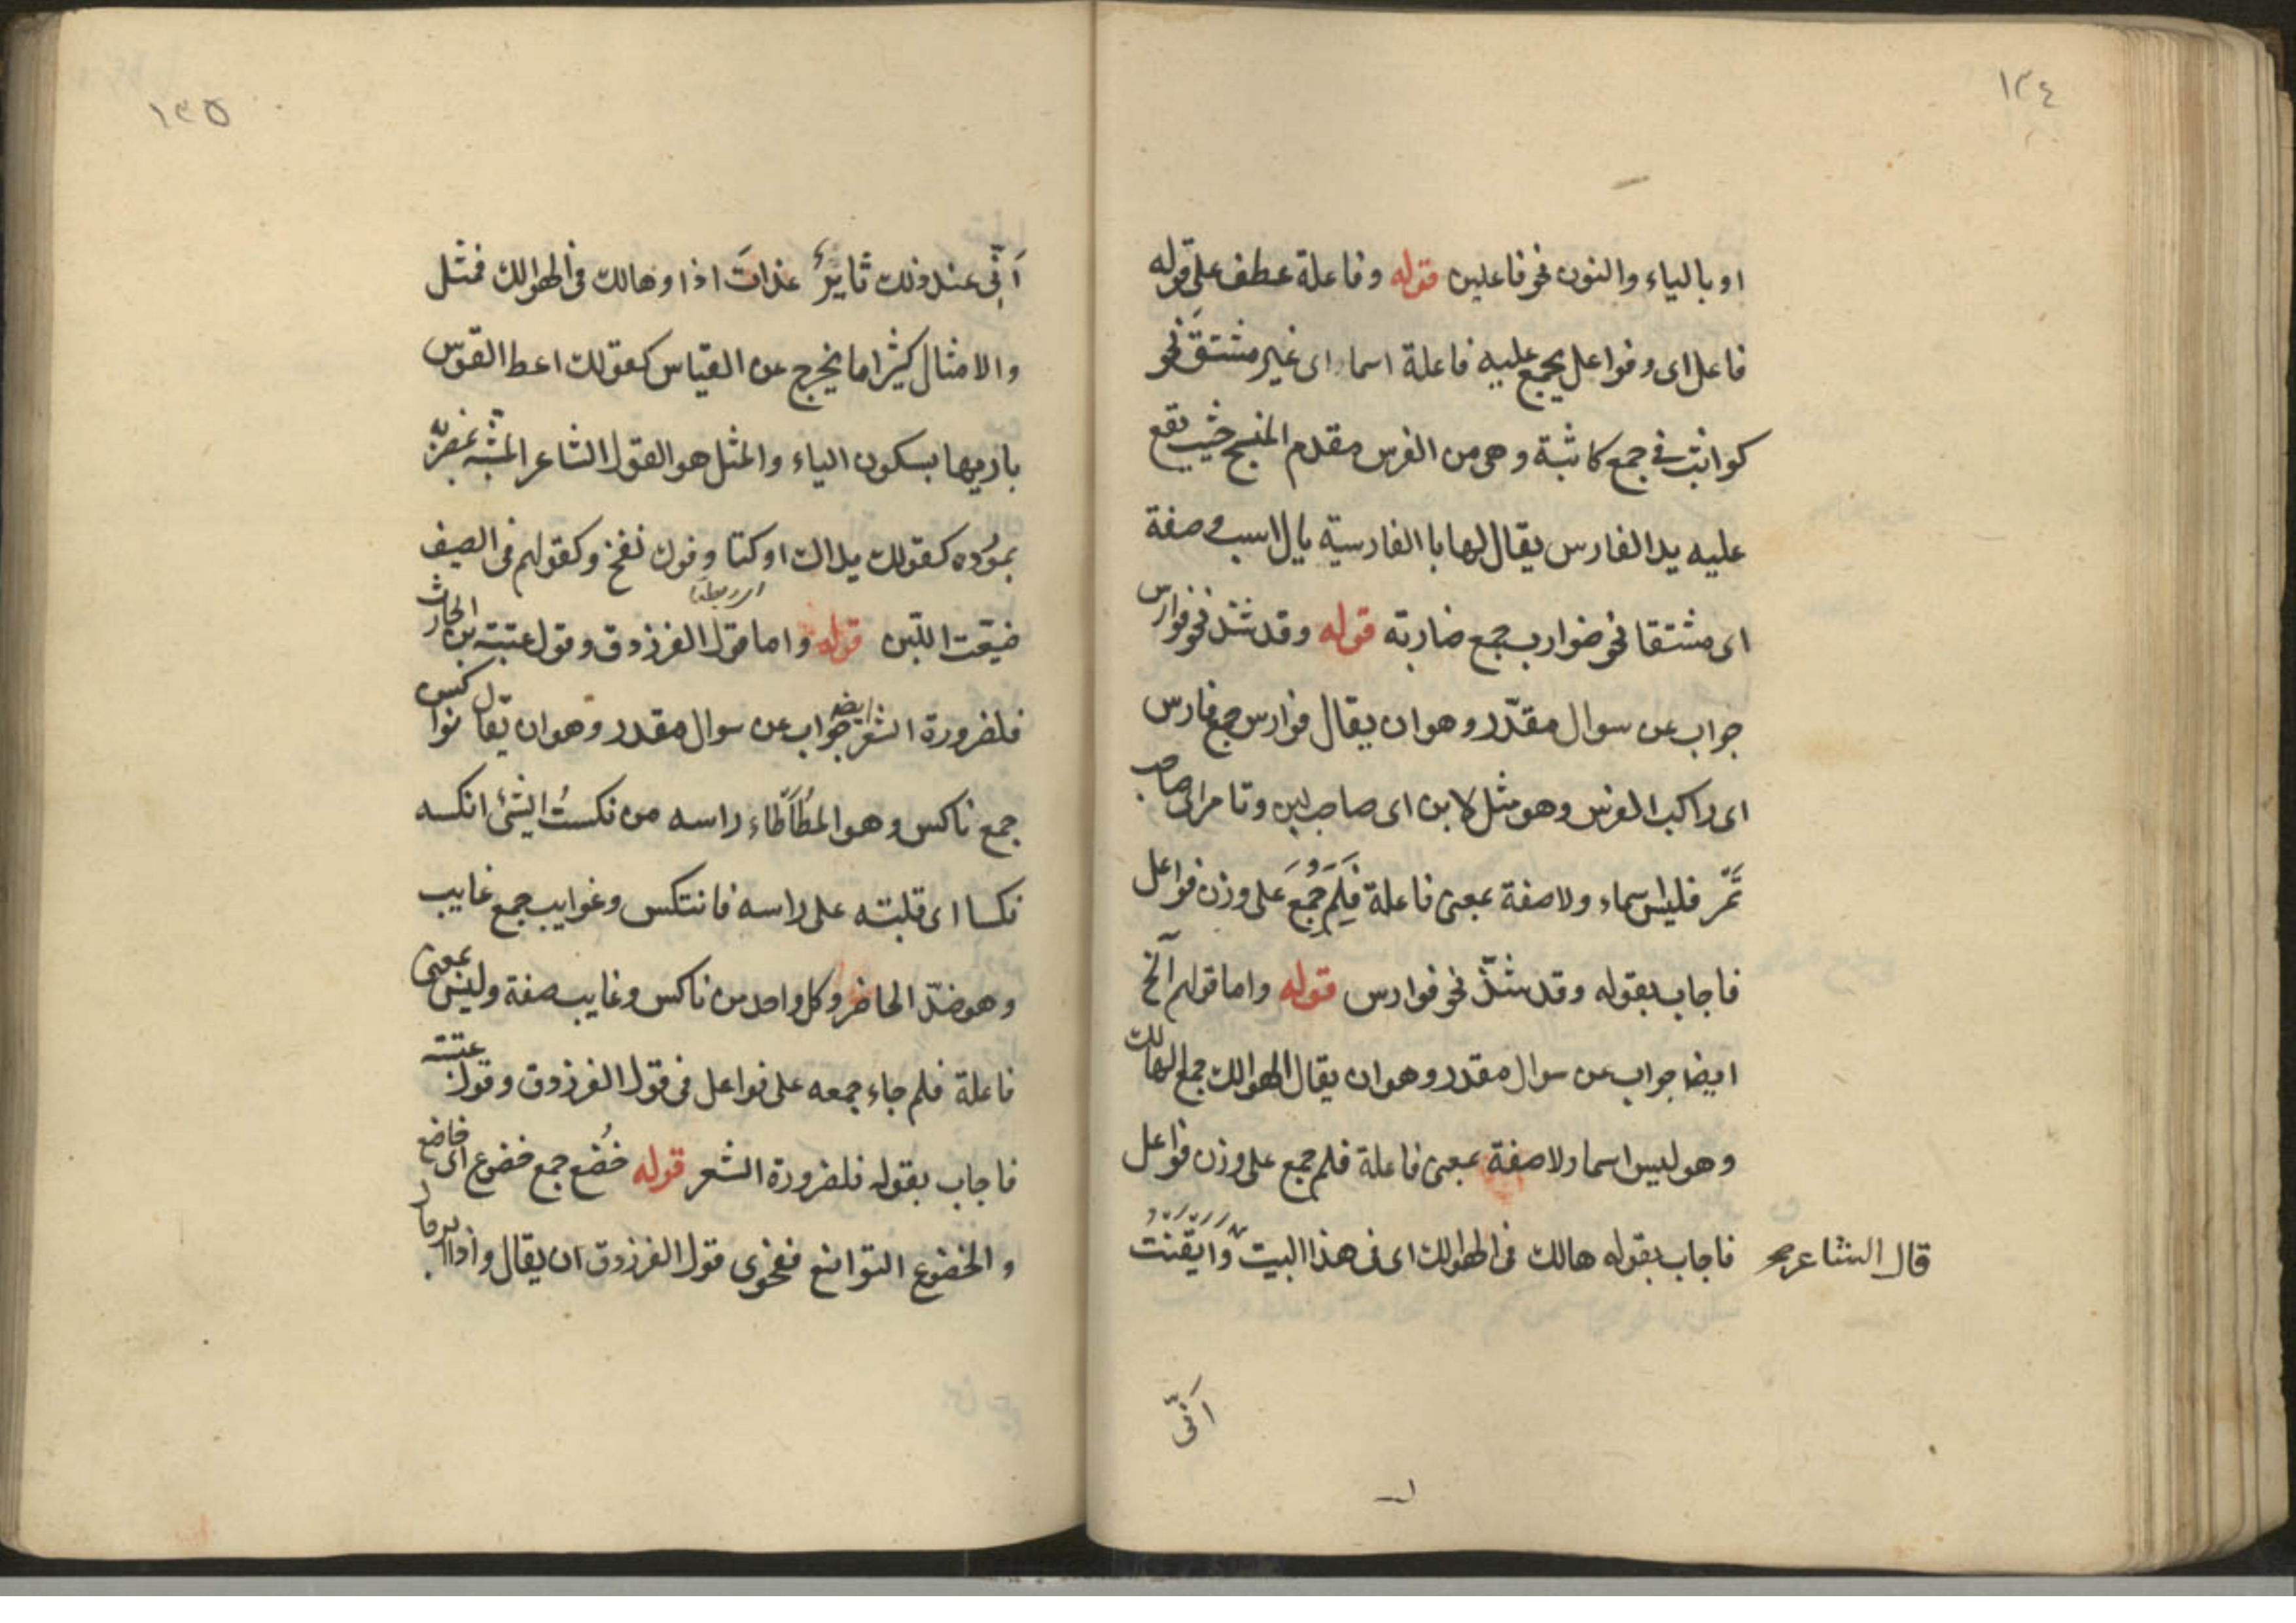 ١٣٤
او بالياء والنون نحو فاعلين قوله وفاعلة عطف على قوله
فاعل اى وفواعل يجمع عليه فاعلة اسما اى غير مشتق نحو
كواثب فى جمع كاثبة وهى من الفرس مقدم المنسج حيث يقع
عليه يد الفارس يقال لها با الفارسية يال اسب وصفة
اى مشتقا نحو ضوارب جمع ضاربة قوله وقد شذ نحو فوارس
جواب عن سوال مقدّر وهو ان يقال فوارس جمع فارس
اى راكب الفرس وهو مثل لابن اى صاحب لبن وتامر اى صاحب
تَمّر فليس اسماء ولا صفة بمعنى فاعلة فَلِمَ جُمِعَ على وزن فواعل
فاجاب بقوله وقد شذّ نحو فوارس قوله واما قولهم آلخ
ايضا جواب عن سوال مقدر وهو ان يقال الهوالك جمع الهالك
وهو ليس اسما ولا صفة بمعنى فاعلة فلم جمع على وزن فواعل
فاجاب بقوله هالك فى الهوالك اى فى هذا البيت وَاَيْقَنْتُ
قال الشاعر صح
اَنّى
١٣٥
اَنّى عند ذلك ثاير غداتَ اذا وهالك فى الهوالك فمثل
والامثال كثيرا ما يخرج عن القياس كقولك اعط القوس
باريها بسكون الياء والمثل هو القول الشاعر المشبه مضربه
بمورده كقولك يداك اوكتا وفوك نفخ وكقولهم فى الصيف
ضيعت اللبن قوله واما قول الفرزدق وقول عتبة بن الحارث
فلضرورة الشعر ايضا جواب عن سوال مقدر وهو ان يقال نواكس
جمع ناكس وهو المُطَأطَاء راسه من نكستُ الشئ انكسه
نكسا اى قلبته على راسه فانتكس وغوايب جمع غايب
وهو ضدّ الحاضر وكل واحد من ناكس وغايب صفة وليس بمعنى
فاعلة فلم جاء جمعه على فواعل فى قول الفرزدق وقول عتبة
فاجاب بقوله فلضرورة الشعر قوله خُضع جمع خضوع اى خاضع
والخضوع التواضع ففحوى قول الفرزدق ان يقال واذا الرجال